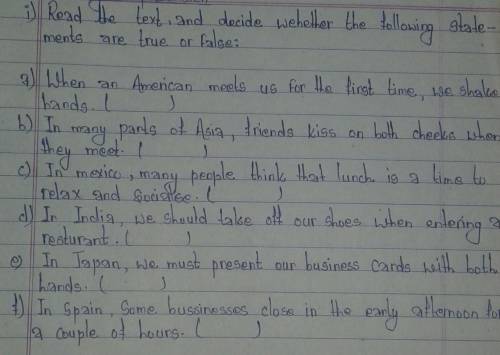 i) Read the text, and decide wehether the following state-
ments are true or false:
a) When an American meets us for the first time, we shake
hands. ( )
b) In many parts of Asia, friends kiss on both cheeks when
they meet. ( )
c) In mexico, many people think that lunch is a time to
relax and socialise. ( )
d) In India, we should take off our shoes when entering a
resturant. ( )
e) In Japan, we must present our business cards with both
hands. ( )
f) In Spain, some bussinesses close in the early afternoon for
a couple of hours. ( )